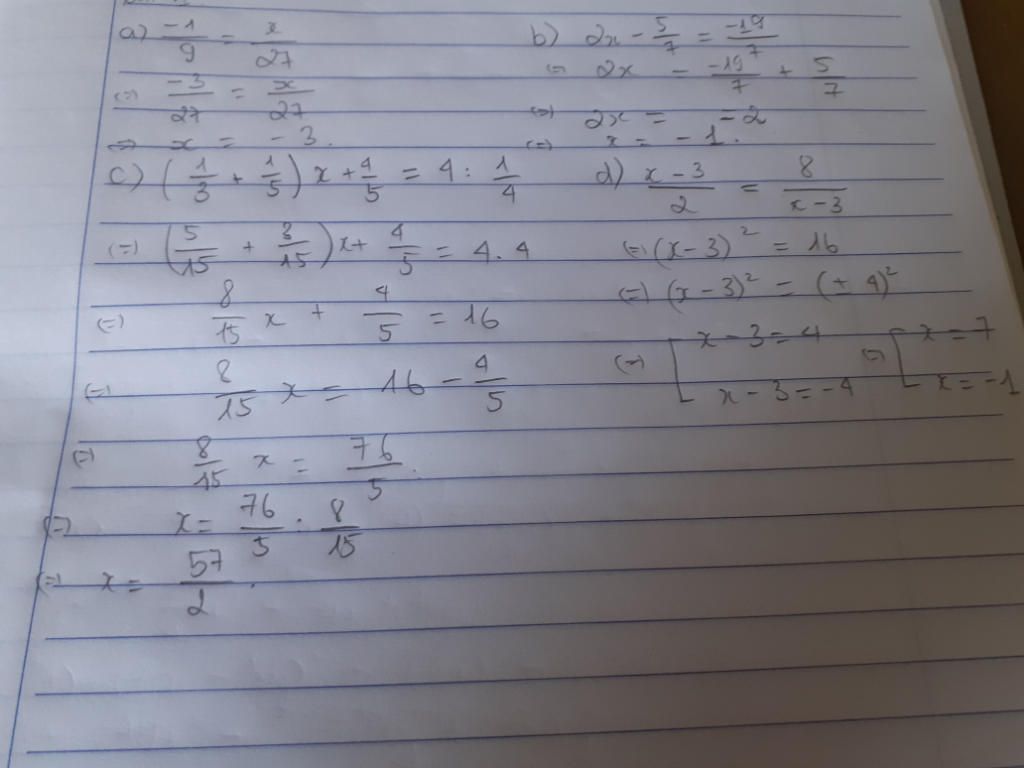 a) -1/9 = x/27
(=) -3/27 = x/27
=> x = -3.
b) 2x - 5/7 = -19/7
(=) 2x = -19/7 + 5/7
(=) 2x = -2
(=) x = -1.
c) (1/3 + 1/5) x + 4/5 = 4 : 1/4
(=) (5/15 + 3/15) x + 4/5 = 4 . 4
(=) 8/15 x + 4/5 = 16
(=) 8/15 x = 16 - 4/5
(=) 8/15 x = 76/5.
(=) x = 76/5 . 8/15
(=) x = 57/2.
d) x-3/2 = 8/x-3
(=) (x-3)² = 16
(=) (x-3)² = (± 4)²
(=) [ x - 3 = 4 (=) [ x = 7
x - 3 = -4 x = -1